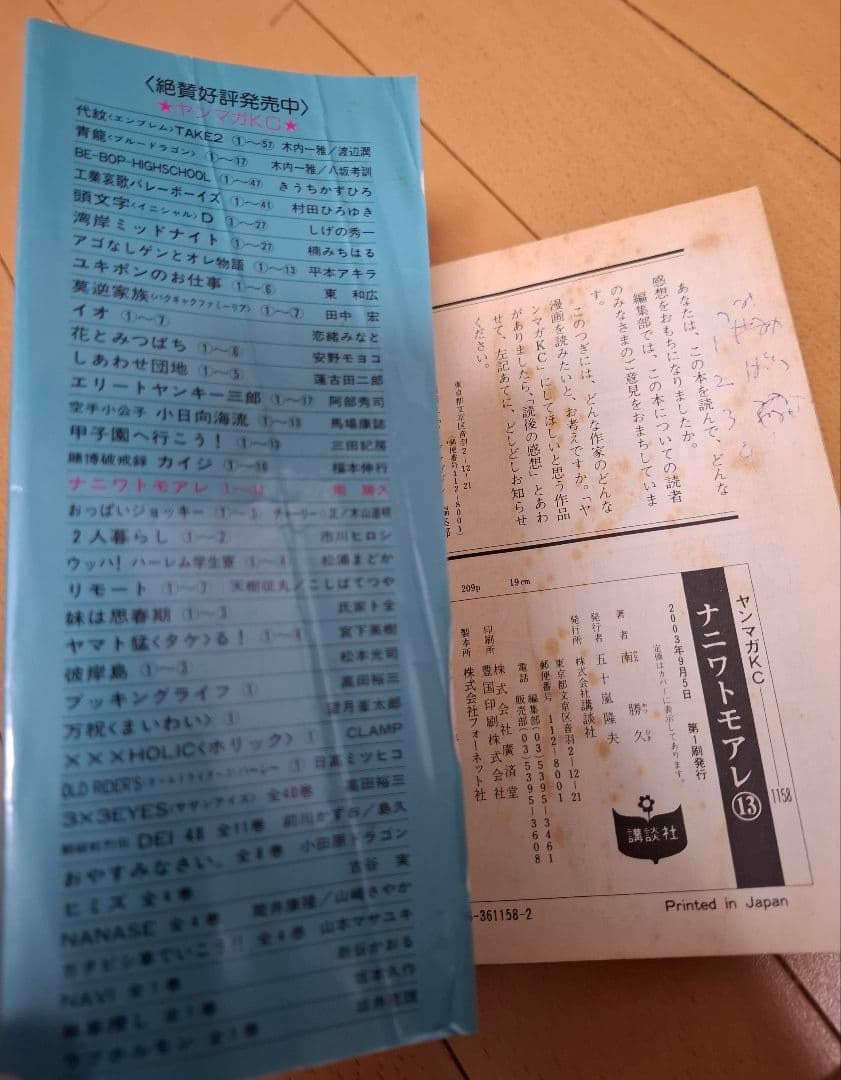 〈絶賛好評発売中〉
★ヤンマガKC★
代紋〈エンブレム〉TAKE2 ①〜57 木内一雅/渡辺潤
青龍〈ブルードラゴン〉 ①〜⑰ 木内一雅/八坂考訓
BE-BOP-HIGHSCHOOL ①〜㊼ きうちかずひろ
工業哀歌バレーボーイズ ①〜㊶ 村田ひろゆき
頭文字〈イニシャル〉D ①〜㉗ しげの秀一
湾岸ミッドナイト ①〜㉗ 楠みちはる
アゴなしゲンとオレ物語 ①〜⑬ 平本アキラ
ユキポンのお仕事 ①〜⑥ 東 和広
莫逆家族〈バクギャクファミーリア〉 ①〜⑦ 田中 宏
イオ ①〜⑦ 恋緒みなと
花とみつばち ①〜⑥ 安野モヨコ
しあわせ団地 ①〜⑤ 蓮古田二郎
エリートヤンキー三郎 ①〜⑰ 阿部秀司
空手小公子 小日向海流 ①〜⑬ 馬場康誌
甲子園へ行こう! ①〜⑬ 三田紀房
賭博破戒録 カイジ ①〜⑩ 福本伸行
ナニワトモアレ 南 勝久
おっぱいジョッキー
2人暮らし ①〜② 市川ヒロシ
ウッハ!ハーレム学生寮 ①〜④ 松浦まどか
リモート 天樹征丸/こしばてつや
妹は思春期 ①〜③ 氏家ト全
ヤマト猛〈タケ〉る! ①〜④ 宮下英樹
彼岸島 ①〜③ 松本光司
ブッキングライフ ① 高田裕三
万祝〈まいわい〉 ① 望月峯太郎
×××HOLiC〈ホリック〉 1 CLAMP
OLD RIDER'S ① 日高ミツヒコ
3×3EYES〈サザンアイズ〉 全40巻 高田裕三
DEI 48 全11巻 前川かずお/島久
おやすみなさい。 全8巻 小田原ドラゴン
ヒミズ 全4巻 古谷 実
NANASE 全4巻 筒井康隆/山崎さやか
全4巻 山本マサユキ
NAVI 全1巻
全1巻
全1巻
あなたは、この本を読んで、どんな
感想をおもちになりましたか。
編集部では、この本についての読者
のみなさまのご意見をおまちしていま
す。
このつぎには、どんな作家のどんな
漫画を読みたいと、お考えですか。「ヤ
ンマガKC」にしてほしいと思う作品
がありましたら、「読後の感想」とあわ
せて、左記あてに、どしどしお知らせ
ください。
東京都文京区音羽2-12-21
(郵便番号112-8001)
1
2
3
209p 19cm
ヤンマガKC
1158
ナニワトモアレ⑬
2003年9月5日 第1刷発行
定価はカバーに表示してあります。
著者 南 勝久
発行者 五十嵐隆夫
発行所 株式会社講談社
東京都文京区音羽2-12-21
郵便番号 112-8001
電話 編集部(03)5395-3461
販売部(03)5395-3608
印刷所 株式会社廣済堂
豊国印刷株式会社
製本所 株式会社フォーネット社
講談社
-361158-2
Printed in Japan